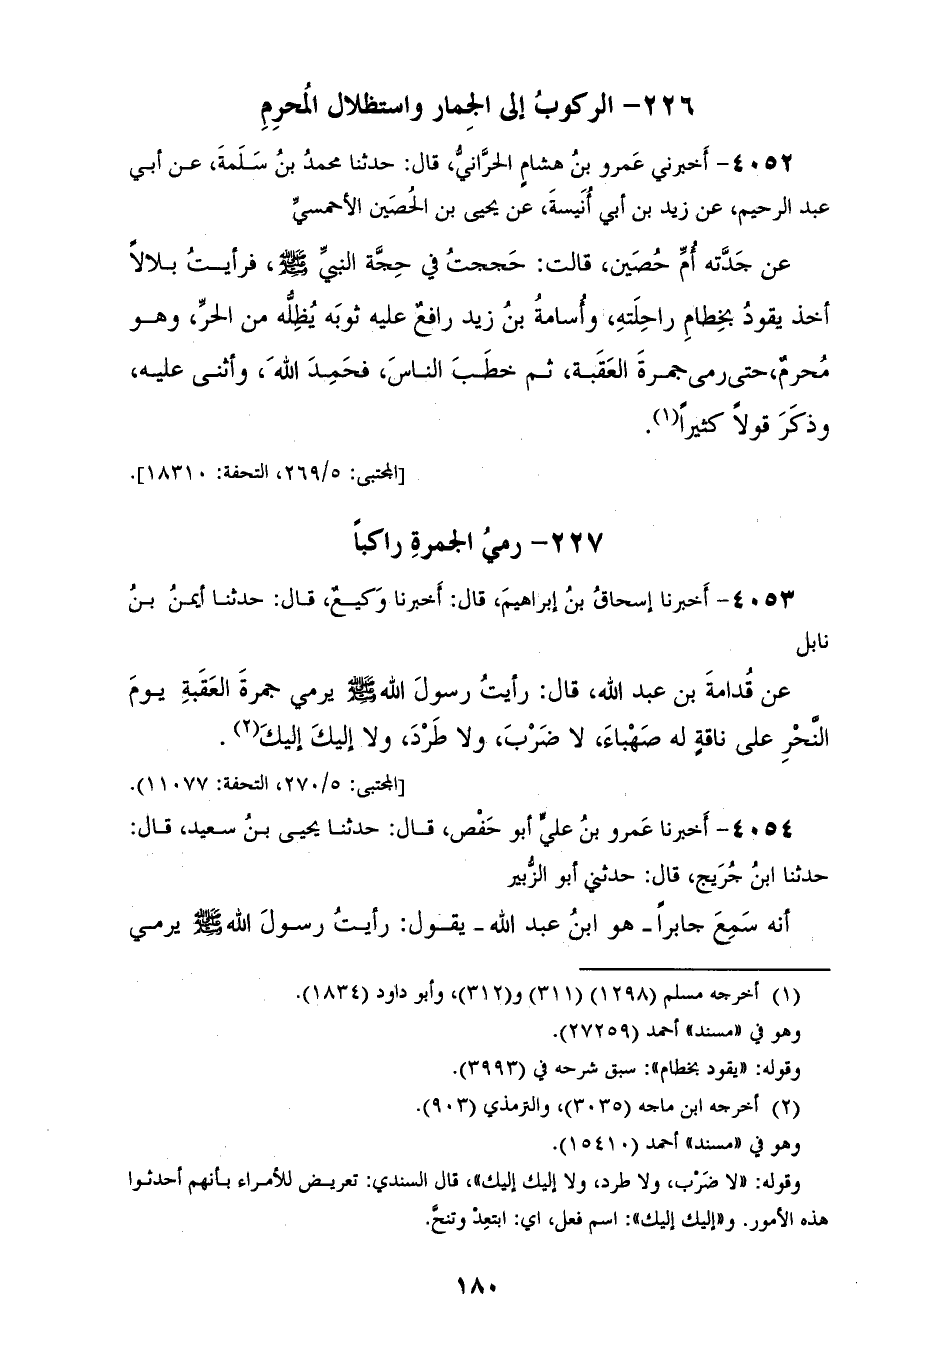 ٢٢٦- الركوبُ إلى الجِمار واستظلال المُحرِمِ
٤٠٥٢- أَخبرني عَمرو بنُ هشامٍ الحَرَّانيُّ، قال: حدثنا محمدُ بنُ سَلَمةَ، عن أبي
عبد الرحيم، عن زيد بن أبي أُنَيسةَ، عن يحيى بن الحُصَين الأحمسيِّ
عن جَدَّته أُمِّ حُصَين، قالت: حَججتُ في حِجَّة النبيِّ ﷺ، فرأيتُ بلالاً
أخذ يقودُ بخِطامِ راحِلَتهِ، وأُسامةُ بنُ زيد رافعٌ عليه ثوبَه يُظِلُّه من الحرِّ، وهو
مُحرمٌ، حتى رمى جمرةَ العَقَبة، ثم خطَبَ الناسَ، فحَمِدَ اللهَ، وأثنى عليه،
وذكَرَ قولاً كثيراً(١).
[المجتبى: ٢٦٩/٥، التحفة: ١٨٣١٠].
٢٢٧- رميُ الجمرةِ راكباً
٤٠٥٣- أَخبرنا إسحاقُ بنُ إبراهيمَ، قال: أَخبرنا وَكيعٌ، قال: حدثنا أيمنُ بنُ
نابل
عن قُدامةَ بن عبد الله، قال: رأيتُ رسولَ الله ﷺ يرمي جمرةَ العَقَبةِ يومَ
النَّحْرِ على ناقةٍ له صَهْباءَ، لا ضَرْبَ، ولا طَرْدَ، ولا إليكَ إليكَ(٢).
[المجتبى: ٢٧٠/٥، التحفة: ١١٠٧٧).
٤٠٥٤- أَخبرنا عَمرو بنُ عليٍّ أبو حَفْص، قال: حدثنا يحيى بنُ سعيد، قال:
حدثنا ابنُ جُرَيج، قال: حدثني أبو الزُّبير
أنه سَمِعَ جابراً- هو ابنُ عبد الله - يقول: رأيتُ رسولَ الله ﷺ يرمي
(١) أخرجه مسلم (١٢٩٨) (٣١١) و(٣١٢)، وأبو داود (١٨٣٤).
وهو في «مسند» أحمد (٢٧٢٥٩).
وقوله: «يقود بخطام»: سبق شرحه في (٣٩٩٣).
(٢) أخرجه ابن ماجه (٣٠٣٥)، والترمذي (٩٠٣).
وهو في «مسند» أحمد (١٥٤١٠).
وقوله: «لا ضَرْب، ولا طرد، ولا إليك إليك»، قال السندي: تعريض للأمراء بأنهم أحدثوا
هذه الأمور. و«إليك إليك»: اسم فعل، اي: ابتعِدْ وتنحَّ.
١٨٠